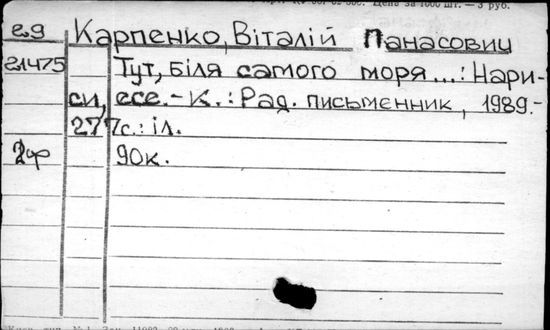 Цена за 1000 шт. — 3 руб.
ед Карпенко, Віталій Панасович
21475 Тут, біля самого моря...: Нари-
си, есе.- К.: Рад. письменник, 1989.-
277с.: іл.
2ф 90к.